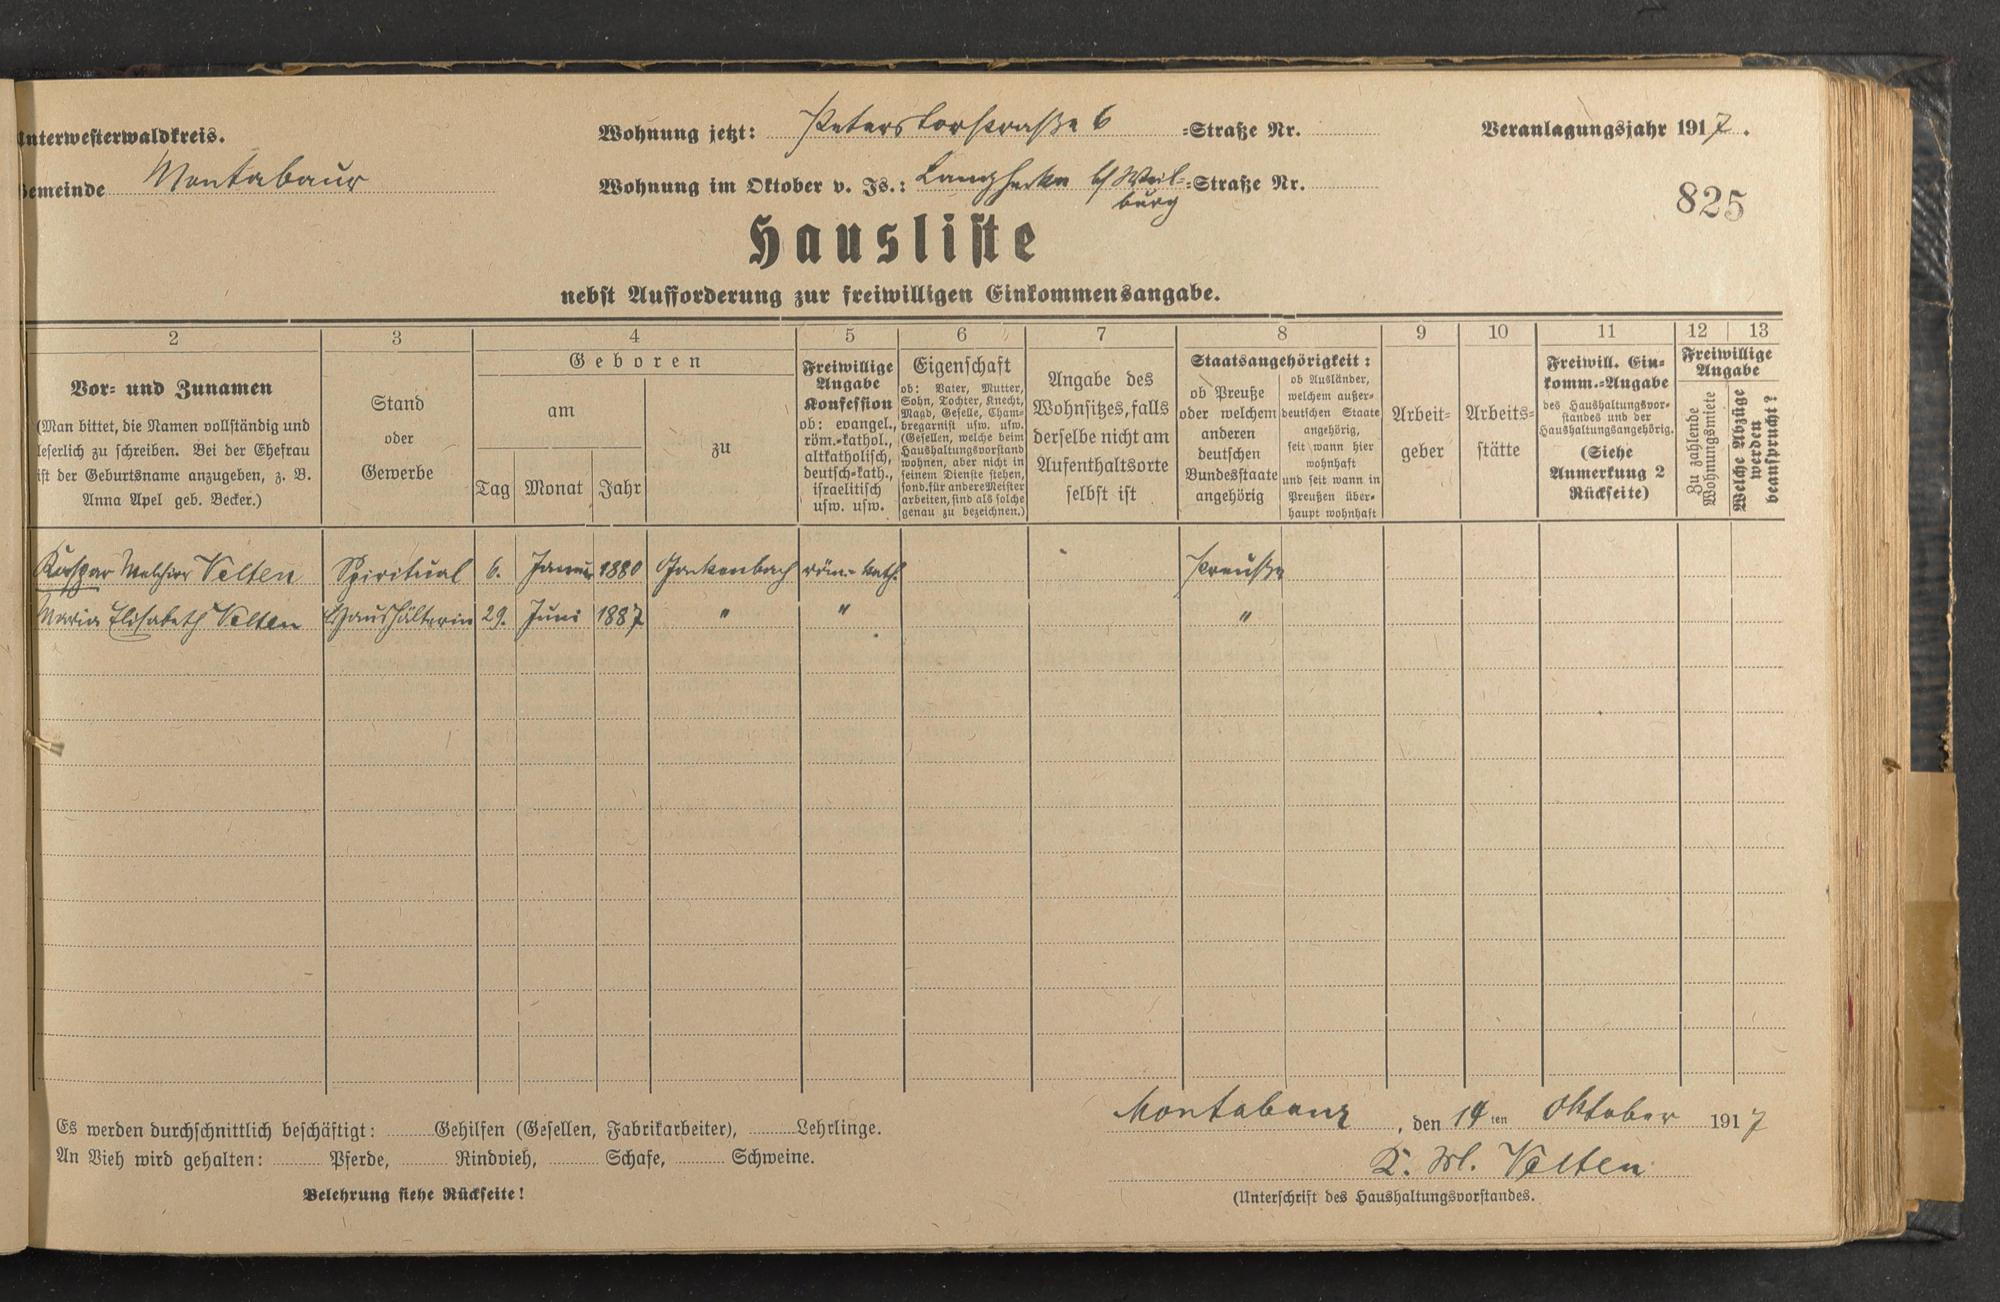 Unterwesterwaldkreis.
Wohnung jetzt: Peterstorstraße 6 =Straße Nr.
Veranlagungsjahr 1917.
Gemeinde Montabaur
Wohnung im Oktober v. Js.: Langhecke b/ Weil- =Straße Nr.
burg
825
Hausliste
nebst Aufforderung zur freiwilligen Einkommensangabe.
2 3 4 5 6 7 8 9 10 11 12 13
Vor- und Zunamen
(Man bittet, die Namen vollständig und
leserlich zu schreiben. Bei der Ehefrau
ist der Geburtsname anzugeben, z. B.
Anna Apel geb. Becker.)
Stand
oder
Gewerbe
Geboren
am
Tag Monat Jahr
zu
Freiwillige
Angabe
Konfession
ob: evangel.,
röm.-kathol.,
altkatholisch,
deutsch-kath.,
israelitisch
usw. usw.
Eigenschaft
ob: Vater, Mutter,
Sohn, Tochter, Knecht,
Magd, Geselle, Cham-
bregarnist usw. usw.
(Gesellen, welche beim
Haushaltungsvorstand
wohnen, aber nicht in
seinem Dienste stehen,
sond. für andere Meister
arbeiten, sind als solche
genau zu bezeichnen.)
Angabe des
Wohnsitzes, falls
derselbe nicht am
Aufenthaltsorte
selbst ist
Staatsangehörigkeit:
ob Preuße
oder welchem
anderen
deutschen
Bundesstaate
angehörig
ob Ausländer,
welchem außer-
deutschen Staate
angehörig,
seit wann hier
wohnhaft
und seit wann in
Preußen über-
haupt wohnhaft
Arbeit-
geber
Arbeits-
stätte
Freiwill. Ein-
komm.-Angabe
des Haushaltungsvor-
standes und der
Haushaltungsangehörig.
(Siehe
Anmerkung 2
Rückseite)
Freiwillige
Angabe
Zu zahlende
Wohnungsmiete
Welche Abzüge
werden
beansprucht?
Kaspar Melchior Velten Spiritual 6. Januar 1880 röm.-kath. Preuße
Maria Elisabeth Velten Haushälterin 29. Juni 1887 " " "
Es werden durchschnittlich beschäftigt: Gehilfen (Gesellen, Fabrikarbeiter), Lehrlinge.
An Vieh wird gehalten: Pferde, Rindvieh, Schafe, Schweine.
Belehrung siehe Rückseite!
Montabaur, den 14 ten Oktober 1917
K. M. Velten
(Unterschrift des Haushaltungsvorstandes.